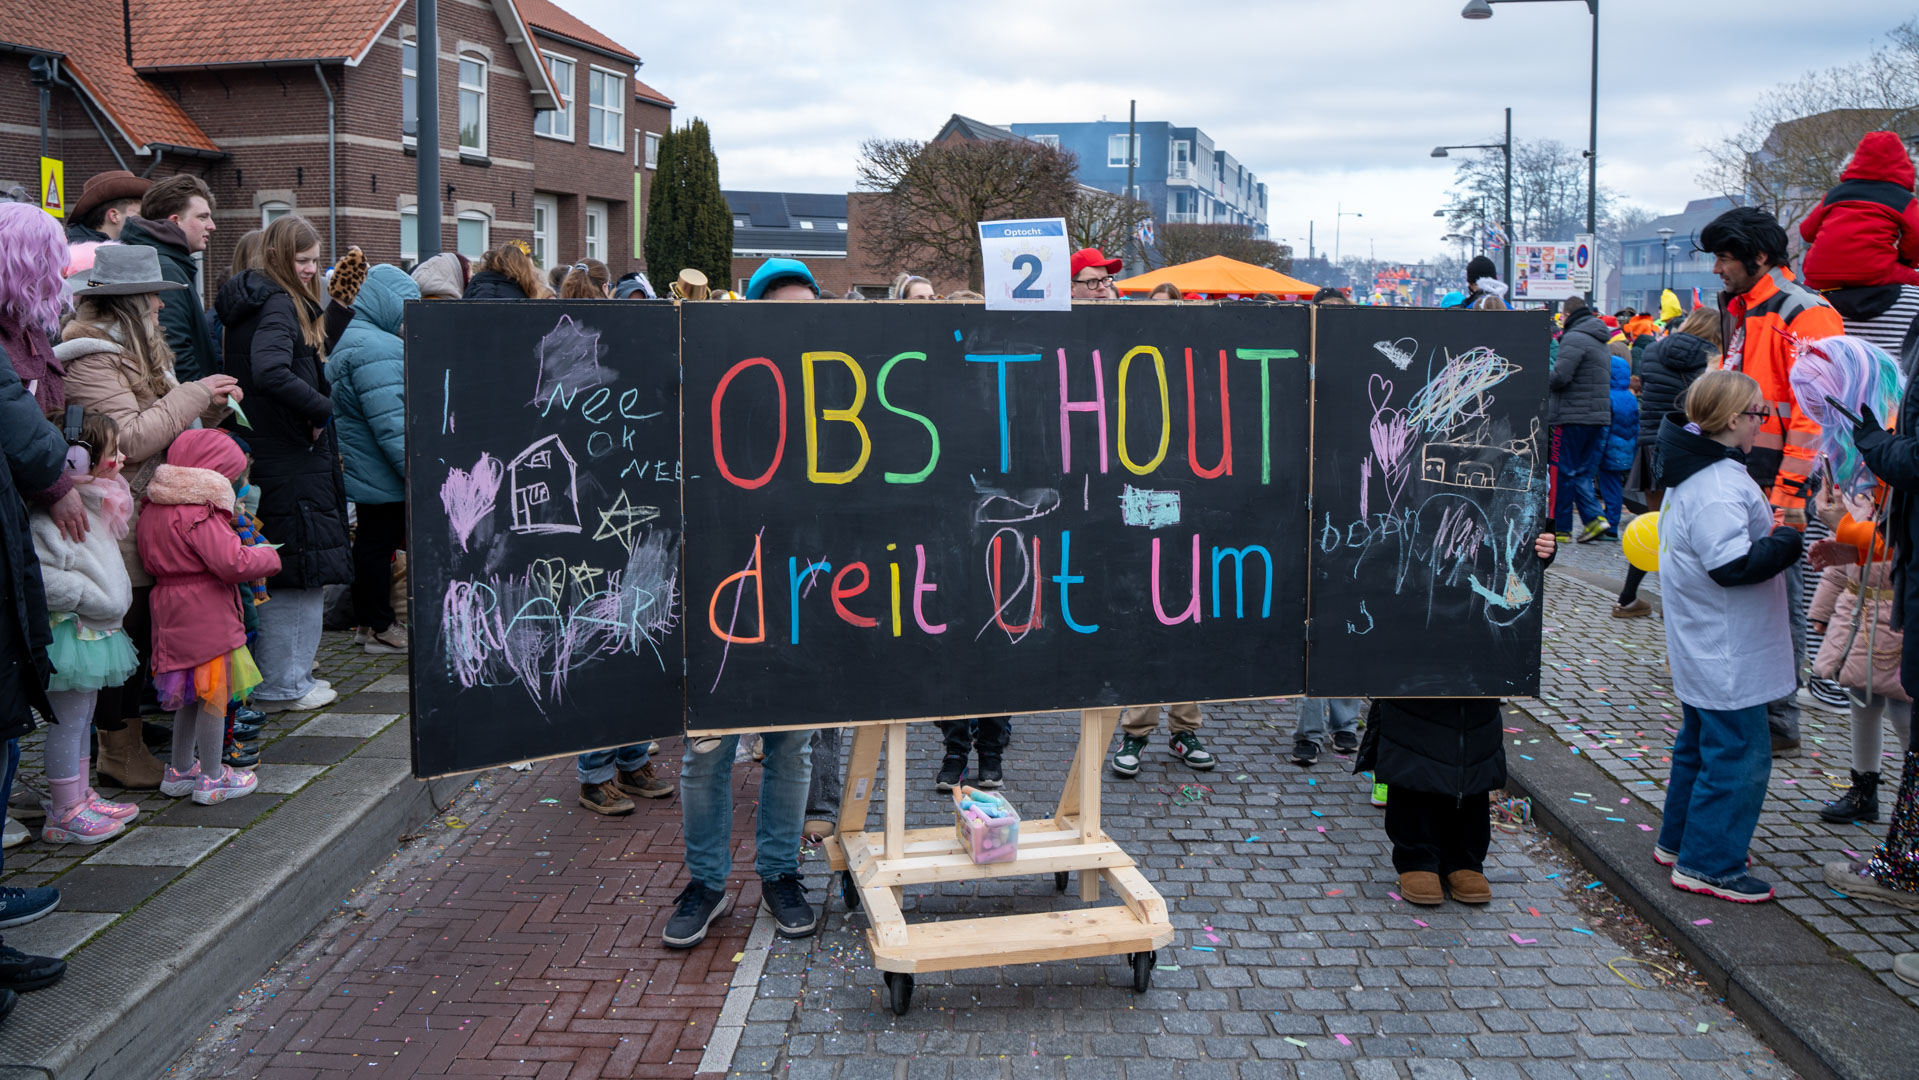 Optocht
2
OBS 'T HOUT
dreit Ut um
Nee
OK
NEE
RAAR